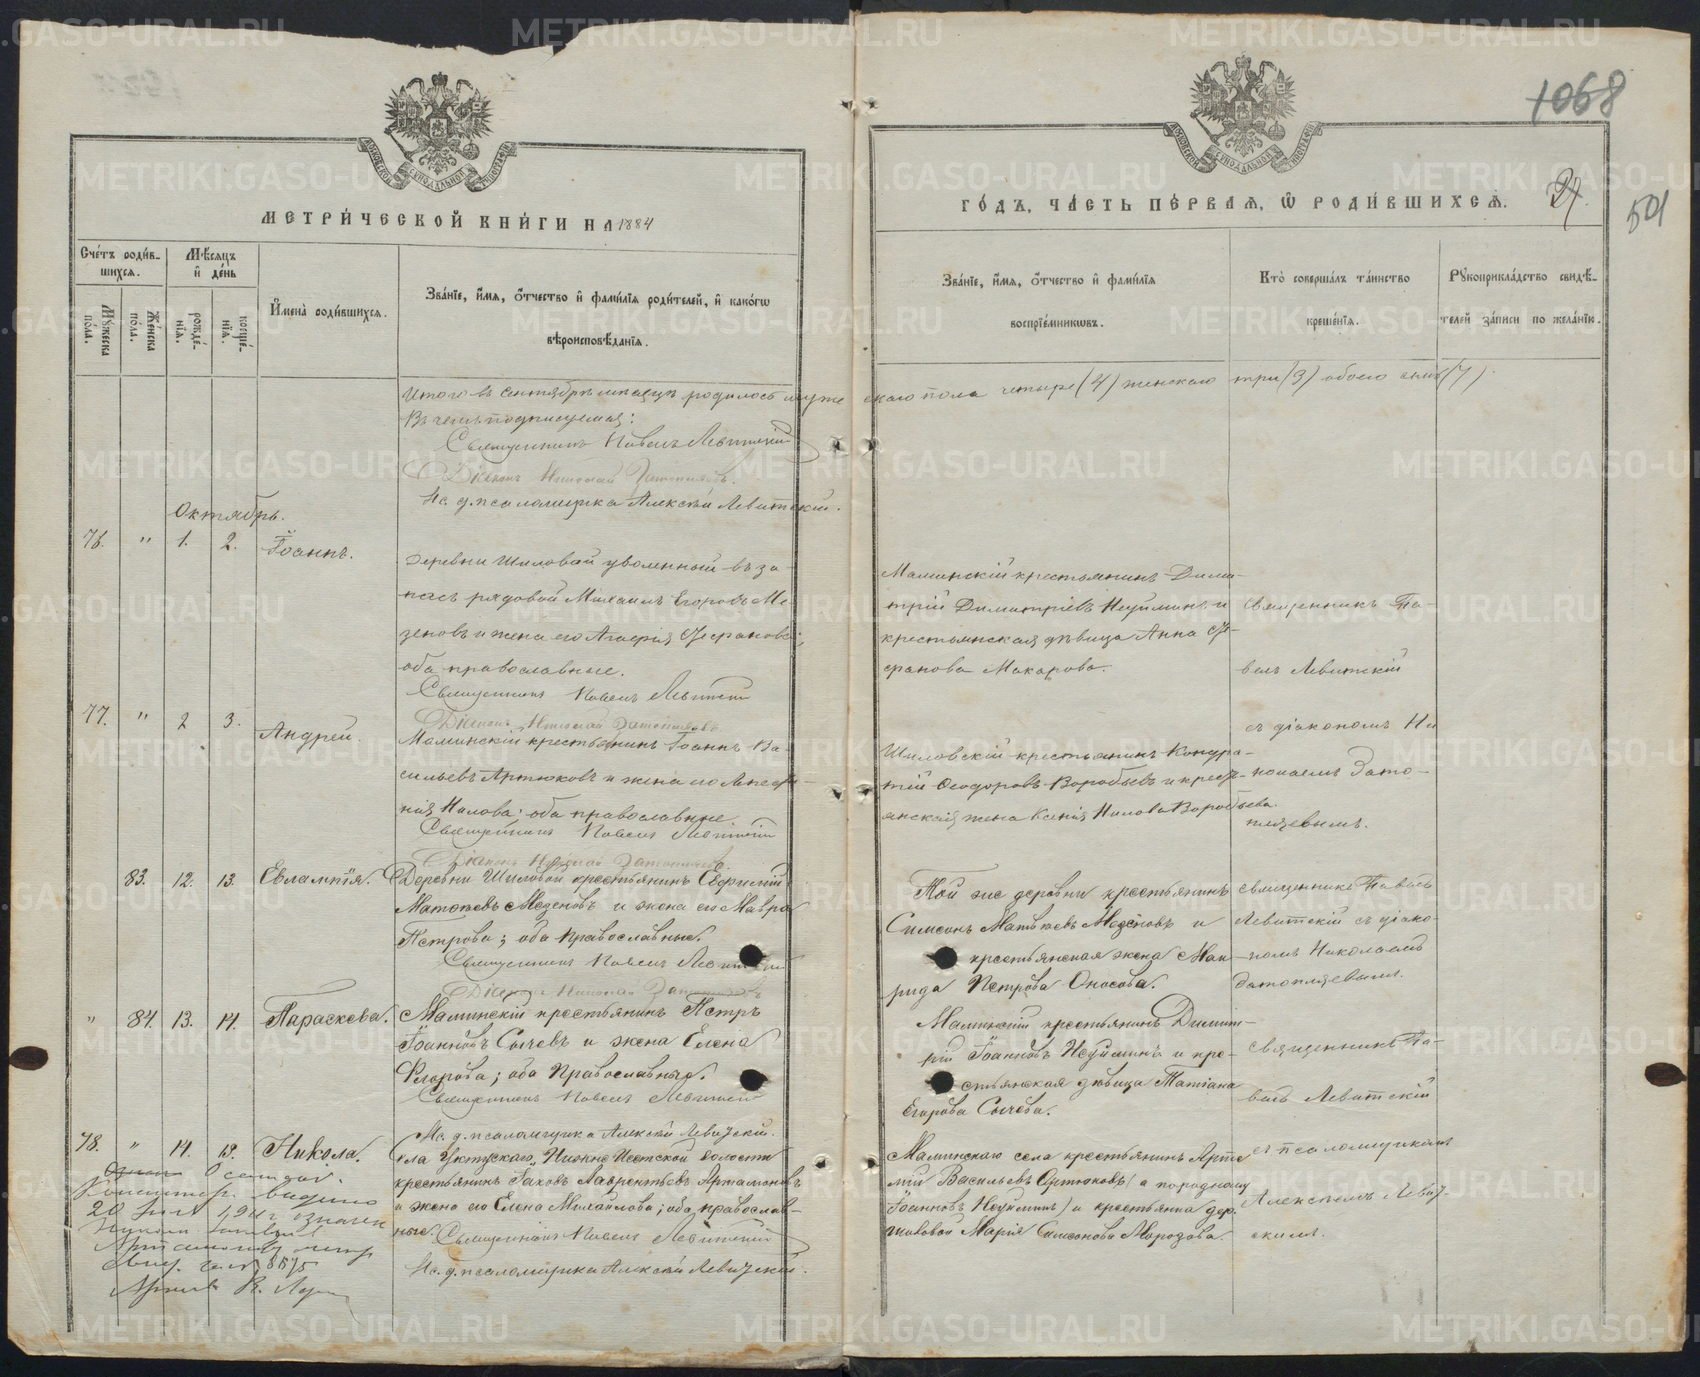 1068
24.
501
МЕТРИ́ЧЕСКОЙ КНИ́ГИ НА 1884
ГО́ДЪ, ЧА́СТЬ ПЕ́РВАЯ, Ѡ РОДИ́ВШИХСЯ.
Сче́тъ роди́вшихся.
Мѣ́сяцъ и де́нь
Му́жеска по́ла.
Же́нска по́ла.
рожде́нїя.
креще́нїя.
И҆мена̀ роди́вшихся.
Зва́нїе, и҆́мя, ѻ҆́тчество и҆ фами́лїя роди́телей, и҆ како́гѡ
вѣроисповѣ́данїя.
Зва́нїе, и҆́мя, ѻ҆́тчество и҆ фами́лїя
воспрїе́мникѡвъ.
Кто̀ соверша́лъ та́инство
креще́нїя.
Рꙋкоприкла́дство свидѣ́телей за́писи по жела́нїю.
Итого въ сентябрѣ мѣсяцѣ родилось мужескаго пола четыре (4) женскаго три (3) обоего семь (7).
Въ чемъ подписуемся:
Священникъ Павелъ Левитскій
Діаконъ Николай Затопляевъ.
Ис. д. псаломщика Алексѣй Левитскій.
Октябрь.
76. " 1. 2. Іоаннъ.
Деревни Шиловой уволенный въ за-
пасъ рядовой Михаилъ Егоровъ Ме-
зеновъ и жена его Агафія Стефанова;
оба православные.
Священникъ Павелъ Левитскій
Діаконъ Николай Затопляевъ
Маминскій крестьянинъ Дими-
трій Димитріевъ Неуйминъ и
крестьянская дѣвица Анна Сте-
фанова Макарова.
Священникъ Па-
велъ Левитскій
съ діакономъ Ни
колаемъ Зато-
пляевымъ.
77. " 2 3. Андрей.
Маминскій крестьянинъ Іоаннъ Ва-
сильевъ Артюховъ и жена его Анфи-
Нилова; оба православные
Священникъ Павелъ Левитскій
Діаконъ Николай Затопляевъ.
Шиловскій крестьянинъ Кондра-
тій Ѳеодоровъ Воробьевъ и крест-
янская жена Ксенія Нилова Воробьева.
83. 12. 13. Евлампія.
Деревни Шиловой крестьянинъ Евфимій
Матѳеевъ Мезеновъ и жена его Мавра
Петрова; оба православные.
Священникъ Павелъ Левитскій
Діаконъ Николай Затопляевъ
Той же деревни крестьянинъ
Симеонъ Матѳеевъ Мезеновъ и
крестьянская жена Мав-
Петрова Оносова.
Священникъ Павелъ
Левитскій съ діако-
номъ Николаемъ
Затопляевымъ.
" 84. 13. 14. Параскева.
Маминскій крестьянинъ Петръ
Іоанновъ Сычевъ и жена Елена
Флорова; оба православные.
Священникъ Павелъ Левитскій
Ис. д. псаломщика Алексѣй Левитскій.
Маминскій крестьянинъ Димит-
рій Іоанновъ Неуйминъ и кре-
стьянская дѣвица Татіана
Егорова Сычева.
Священникъ Па-
велъ Левитскій
съ псаломщикомъ
Алексѣемъ Левит-
скимъ.
78. " 14. 15. Никола.
Села Уктусскаго, Нижне Исетской волости
крестьянинъ Іаковъ Лаврентьевъ Артамоновъ
и жена его Елена Михайлова; оба православ-
ные. Священникъ Павелъ Левитскій
Ис. д. псаломщика Алексѣй Левитскій.
Маминскаго села крестьянинъ Арте-
мій Васильевъ Артюховъ (а породному
Іоанновъ Неуйминъ) и крестьянка дер.
Шиловой Марія Симеонова Морозова.
20 1911 г.